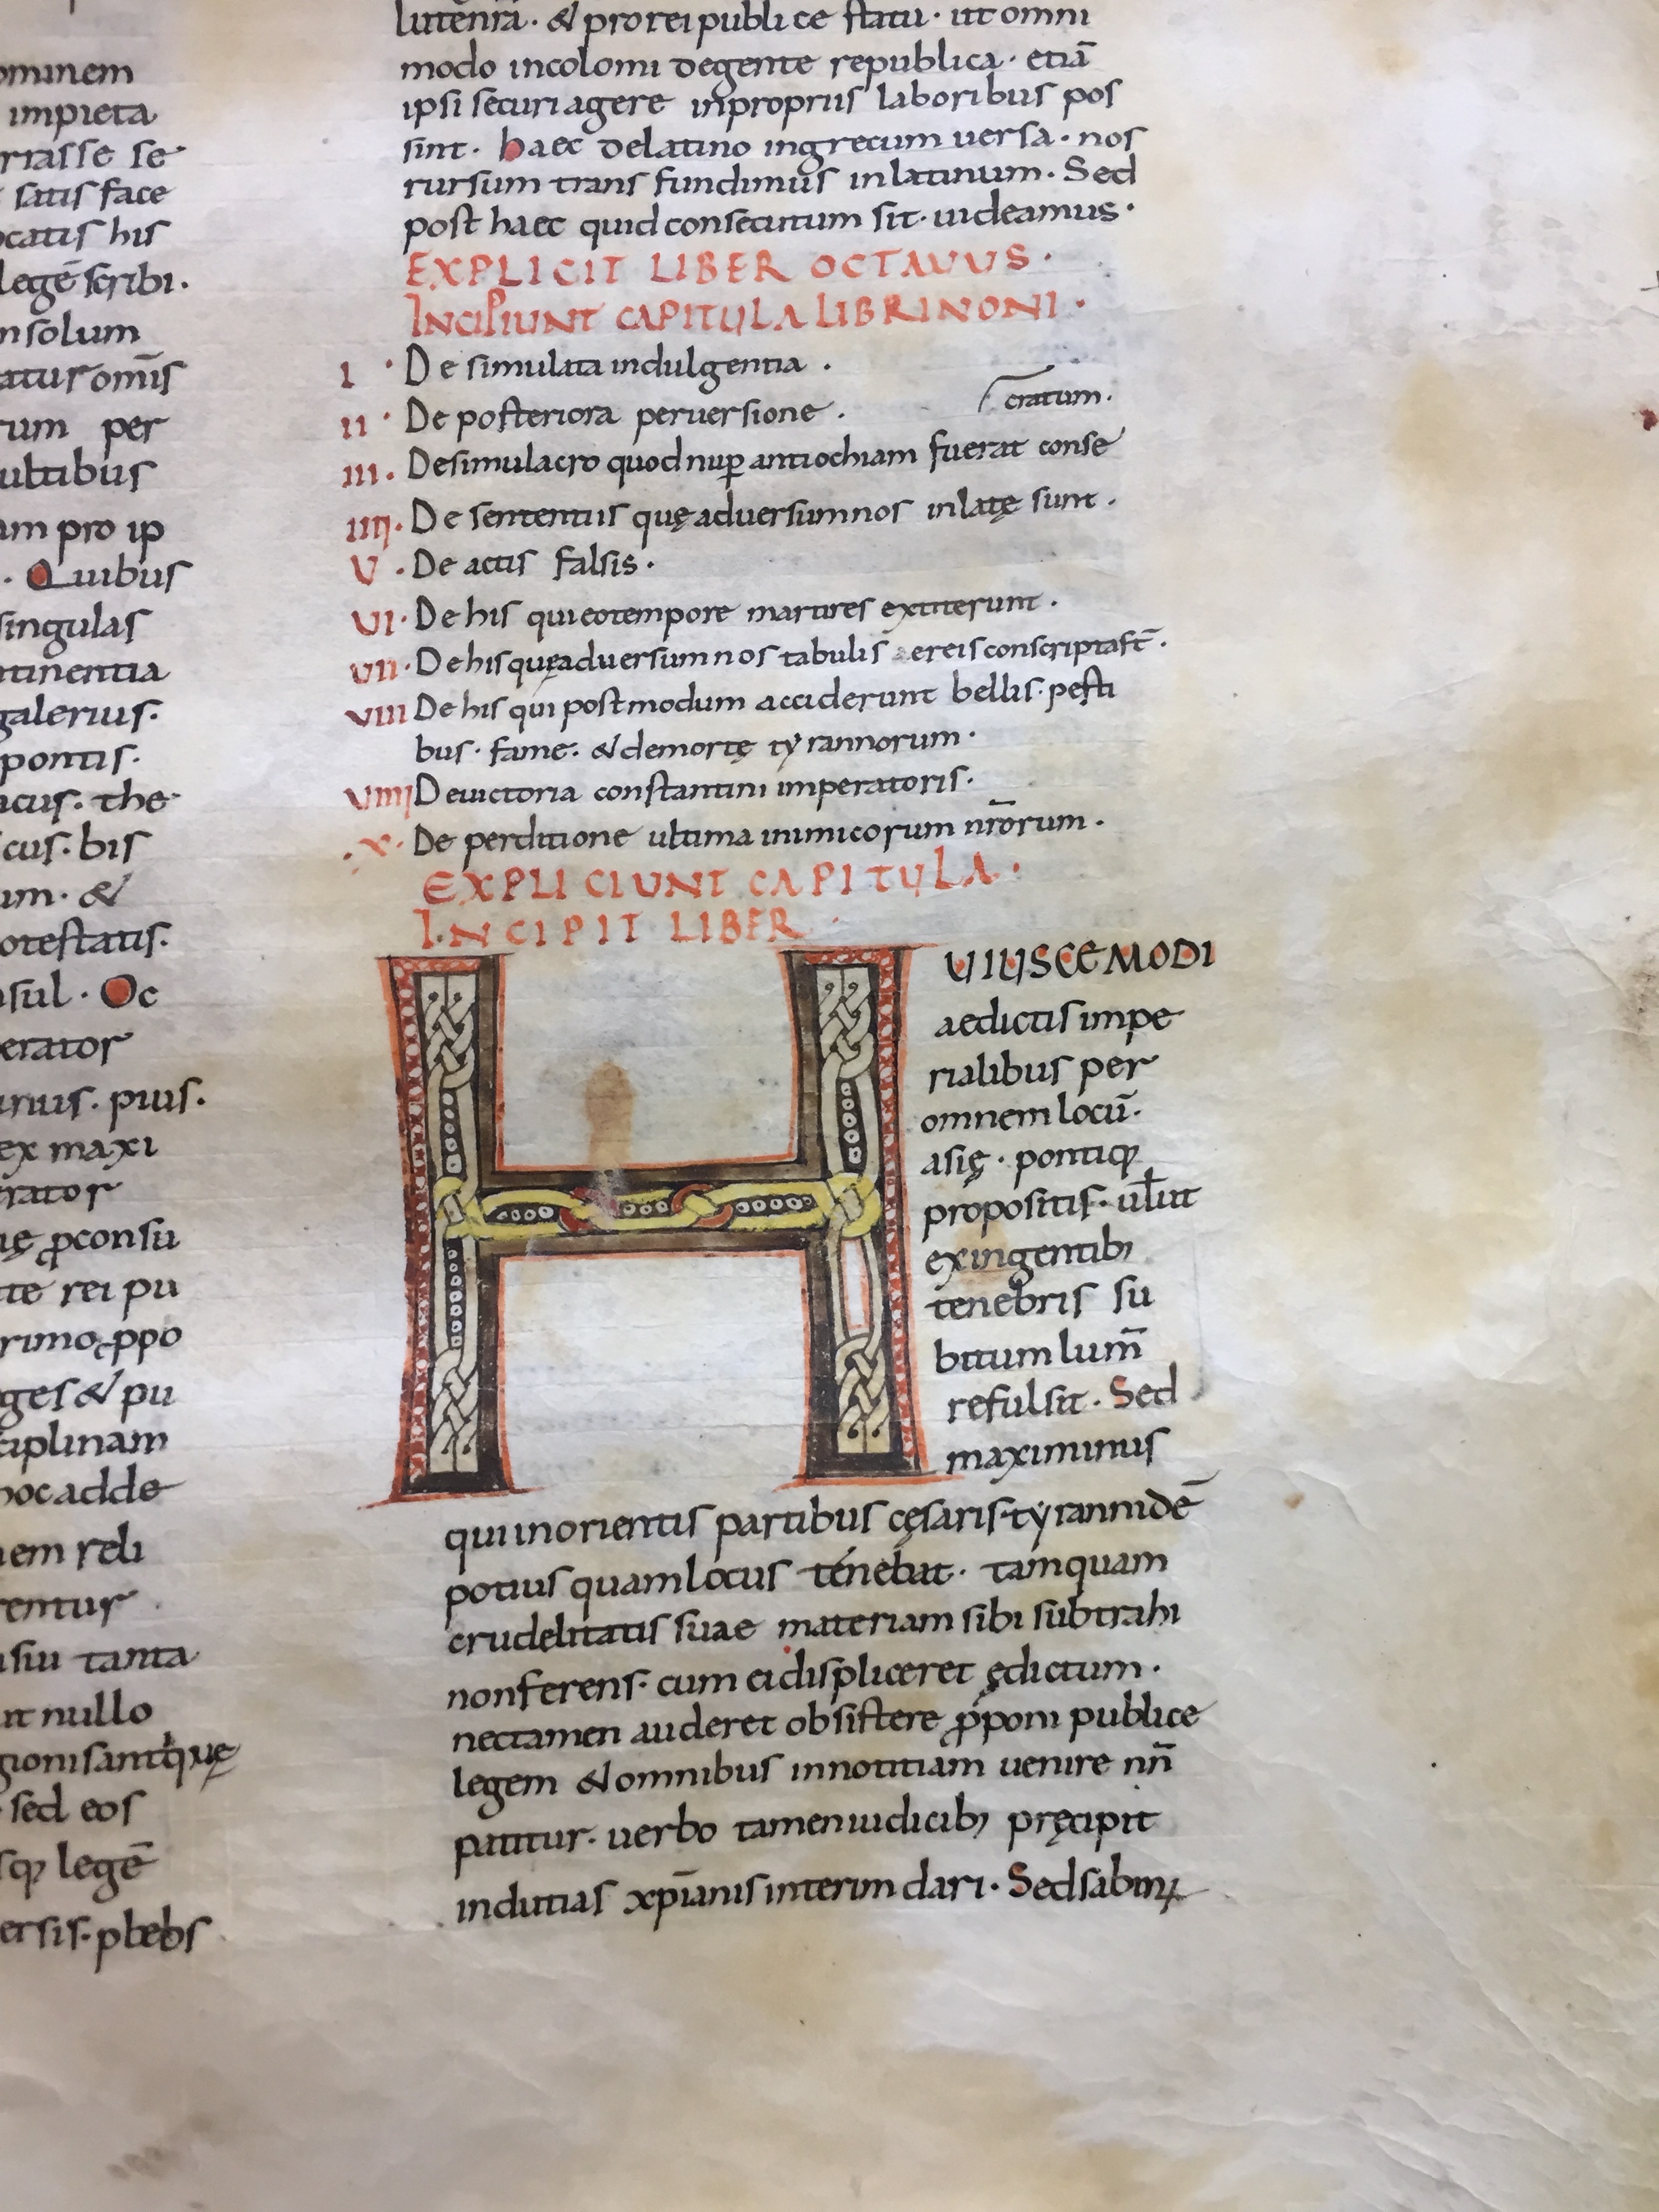 ominem
impieta
rrasse se
satisface
ocatis his
legē scribi.
nsolum
atur om̄s
rum per
ultibus
am pro ip
. Quibus
singulas
ntinentia
galerius.
pontis.
icus. the
icus. bis
um. &
otestatis.
sul. Oc
perator
urius. pius.
ex maxi
erator
ꝓconsu
te rei pu
rimo ꝓpo
ges & pu
ciplinam
hoc adde
em reli
rentur
usiu tanta
ut nullo
gionis antiquę
sed eos
sq; legē
ersis. plebs
lutem rā. & pro rei publice statu. ut omni
modo incolomi degente republica. etiā
ipsi securi agere in propriis laboribus pos
sint. haec de latino in grecum uersa. nos
rursum transfundimus in latinum. Sed
post haec quid consecutum sit. uideamus.
EXPLICIT LIBER OCTAVUS.
INCIPIUNT CAPITULA LIBRI NONI.
I. De simulata indulgentia.
II. De posteriora peruersione.
cratum.
III. De simulacro quod nuꝑ antiochiam fuerat conse
IIII. De sententiis quę aduersum nos inlatę sunt.
V. De actis falsis.
VI. De his qui eo tempore martires extiterunt.
VII. De his quę aduersum nos tabulis aereis conscripta st̄.
VIII De his qui postmodum acciderunt bellis. pesti
bus. fame. & de mortę tyrannorum.
VIIII De uictoria constantini imperatoris.
.X. De perditione ultima inimicorum nr̄orum.
EXPLICIUNT CAPITULA.
INCIPIT LIBER
HUIUSCEMODI
aedictis impe
rialibus per
omnem locū.
asię. pontiq;
propositis. uł ut
ex ingentib;
tenebris su
bitum lum̄
refulsit. Sed
maximinus
qui in orientis partibus cęsaris. tyrannidē
potius quam locus tenebat. tamquam
crudelitatis suae materiam sibi subtrahi
non ferens. cum ei displiceret ędictum.
nec tamen auderet obsistere ꝓponi publice
legem & omnibus in notitiam uenire nn̄
patitur. uerbo tamen iudicib; pręcipit
indutias xp̄ianis interim dari. Sed sabinꝰ